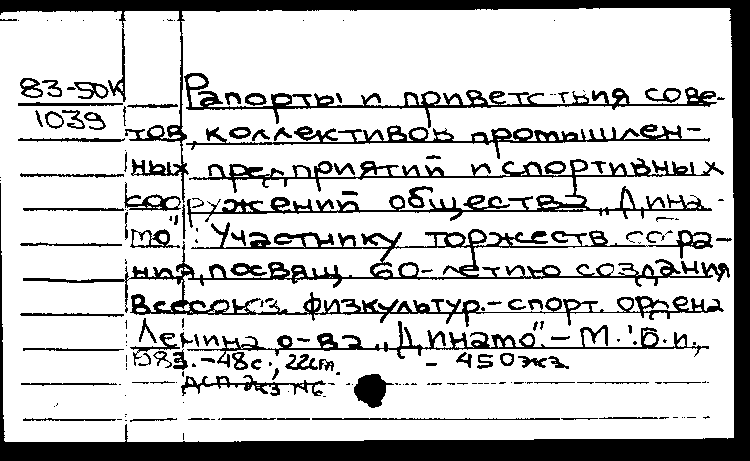 83-50К
1039
Рапорты и приветствия сове-
тов, коллективов промышлен-
ных предприятий и спортивных
сооружений общества „Дина-
мо": Участнику торжеств. собра-
ния, посвящ. 60-летию создания
Всесоюз. физкультур.-спорт. ордена
Ленина о-ва „Динамо". - М.: Б.и.,
1983. - 48с.; 22см. - 450экз.
ДСП. Экз №6